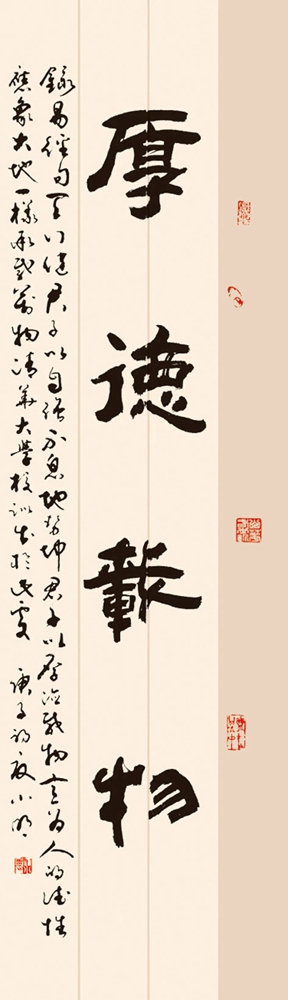 厚德載物
錄易經句天行健君子以自強不息地勢坤君子以厚德載物言為人的德性
應象大地一樣承載萬物清華大學校訓出於此處 庚子初夏小